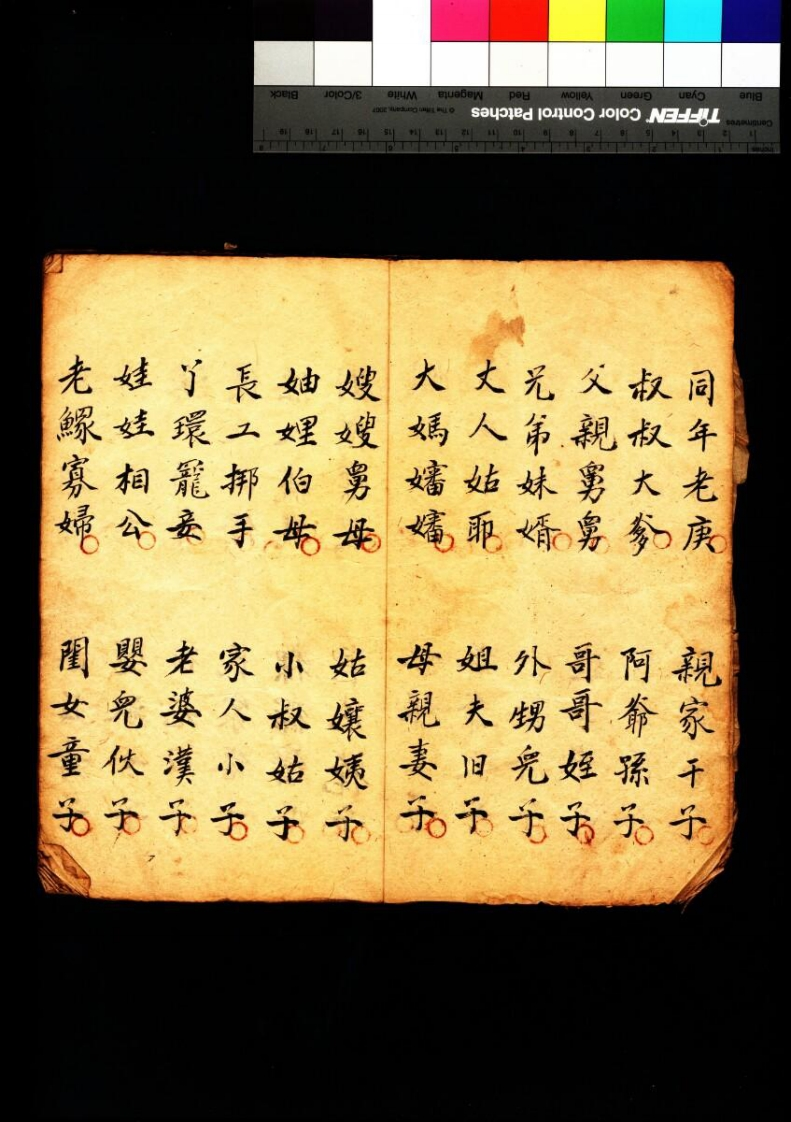 Inches
Centimetres
TIFFEN Color Control Patches
© The Tiffen Company, 2007
Blue Cyan Green Yellow Red Magenta White 3/Color Black
同年老庚 親家干子
叔叔大爹 阿爺孫子
父親舅舅 哥哥姪子
兄弟妹婿 外甥兒子
丈人姑耶 姐夫旧子
大媽嬸嬸 母親妻子
嫂嫂舅母 姑孃姨子
妯娌伯母 小叔姑子
長工挷手 家人小子
丫環寵妾 老婆漢子
娃娃相公 嬰兒伙子
老鰥寡婦 閨女童子